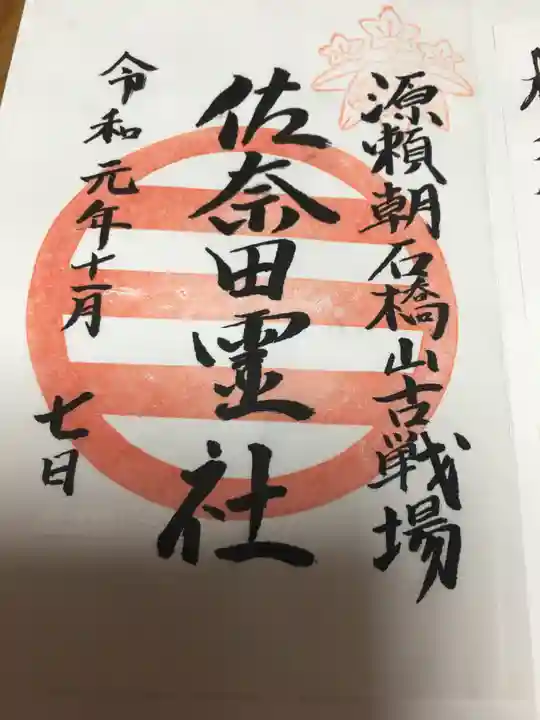 源頼朝石橋山古戦場
佐奈田霊社
令和元年十一月
七日